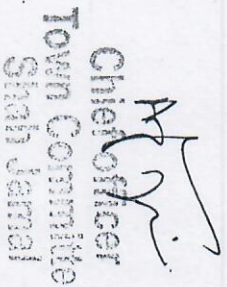 Chief officer
Town Committe
Shah Jamal